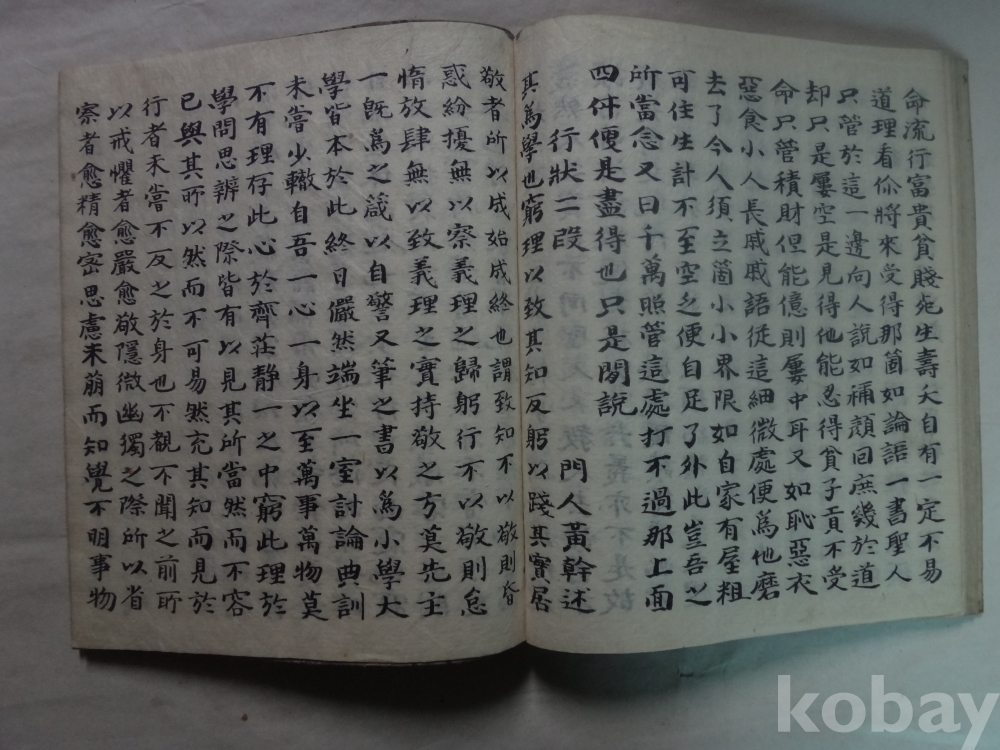 命流行富貴貧賤死生壽夭自有一定不易
道理看你將來受得那箇如論語一書聖人
只管於這一邊向人說如稱顔回庶幾於道
却只是屢空是見得他能忍得貧子貢不受
命只管積財但能億則屢中耳又如恥惡衣
惡食小人長戚戚語從這細微處便爲他磨
去了今人須立箇小小界限如自家有屋粗
可住生計不至空乏便自足了外此豈吾之
所當念又曰千萬照管這處打不過那上面
四件便是盡得也只是閒說
行狀二段 門人黃幹述
其爲學也窮理以致其知反躬以踐其實居
敬者所以成始成終也謂致知不以敬則昏
惑紛擾無以察義理之歸躬行不以敬則怠
惰放肆無以致義理之實持敬之方莫先主
一旣爲之箴以自警又筆之書以爲小學大
學皆本於此終日儼然端坐一室討論典訓
未嘗少轍自吾一心一身以至萬事萬物莫
不有理存此心於齊莊静一之中窮此理於
學問思辨之際皆有以見其所當然而不容
已與其所以然而不可易然充其知而見於
行者未嘗不反之於身也不覩不聞之前所
以戒懼者愈嚴愈敬隱微幽獨之際所以省
察者愈精愈密思慮未萠而知覺不明事物
kobay